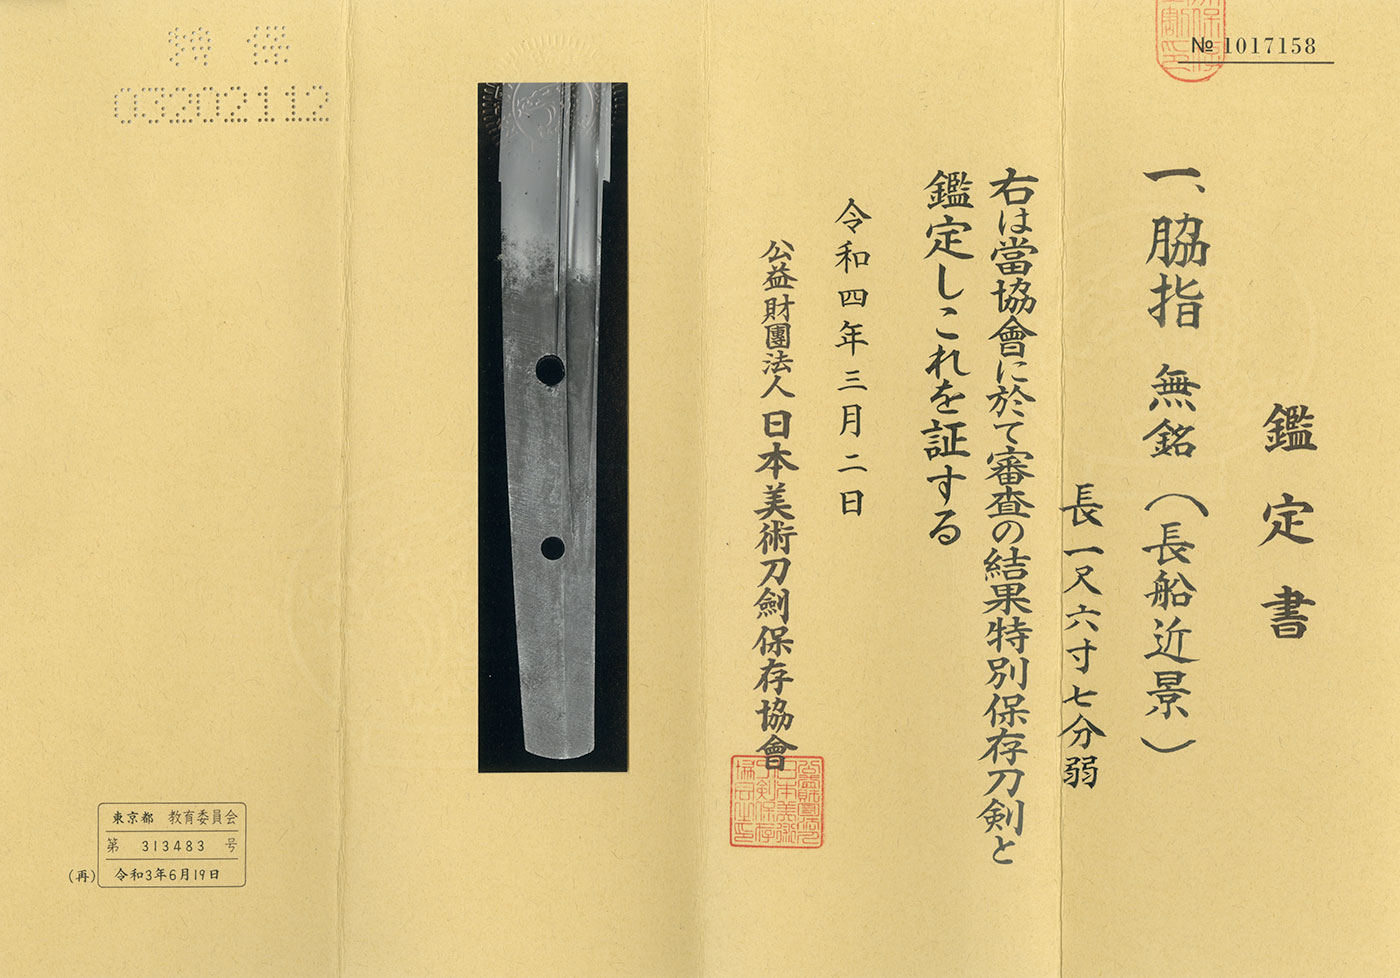 № 1017158
鑑定書
一、脇指 無銘（長船近景）
長一尺六寸七分弱
右は當協會に於て審査の結果特別保存刀剣と
鑑定しこれを証する
令和四年三月二日
公益財團法人日本美術刀劍保存協會
特保
03202112
東京都 教育委員会
第 313483 号
(再) 令和3年6月19日